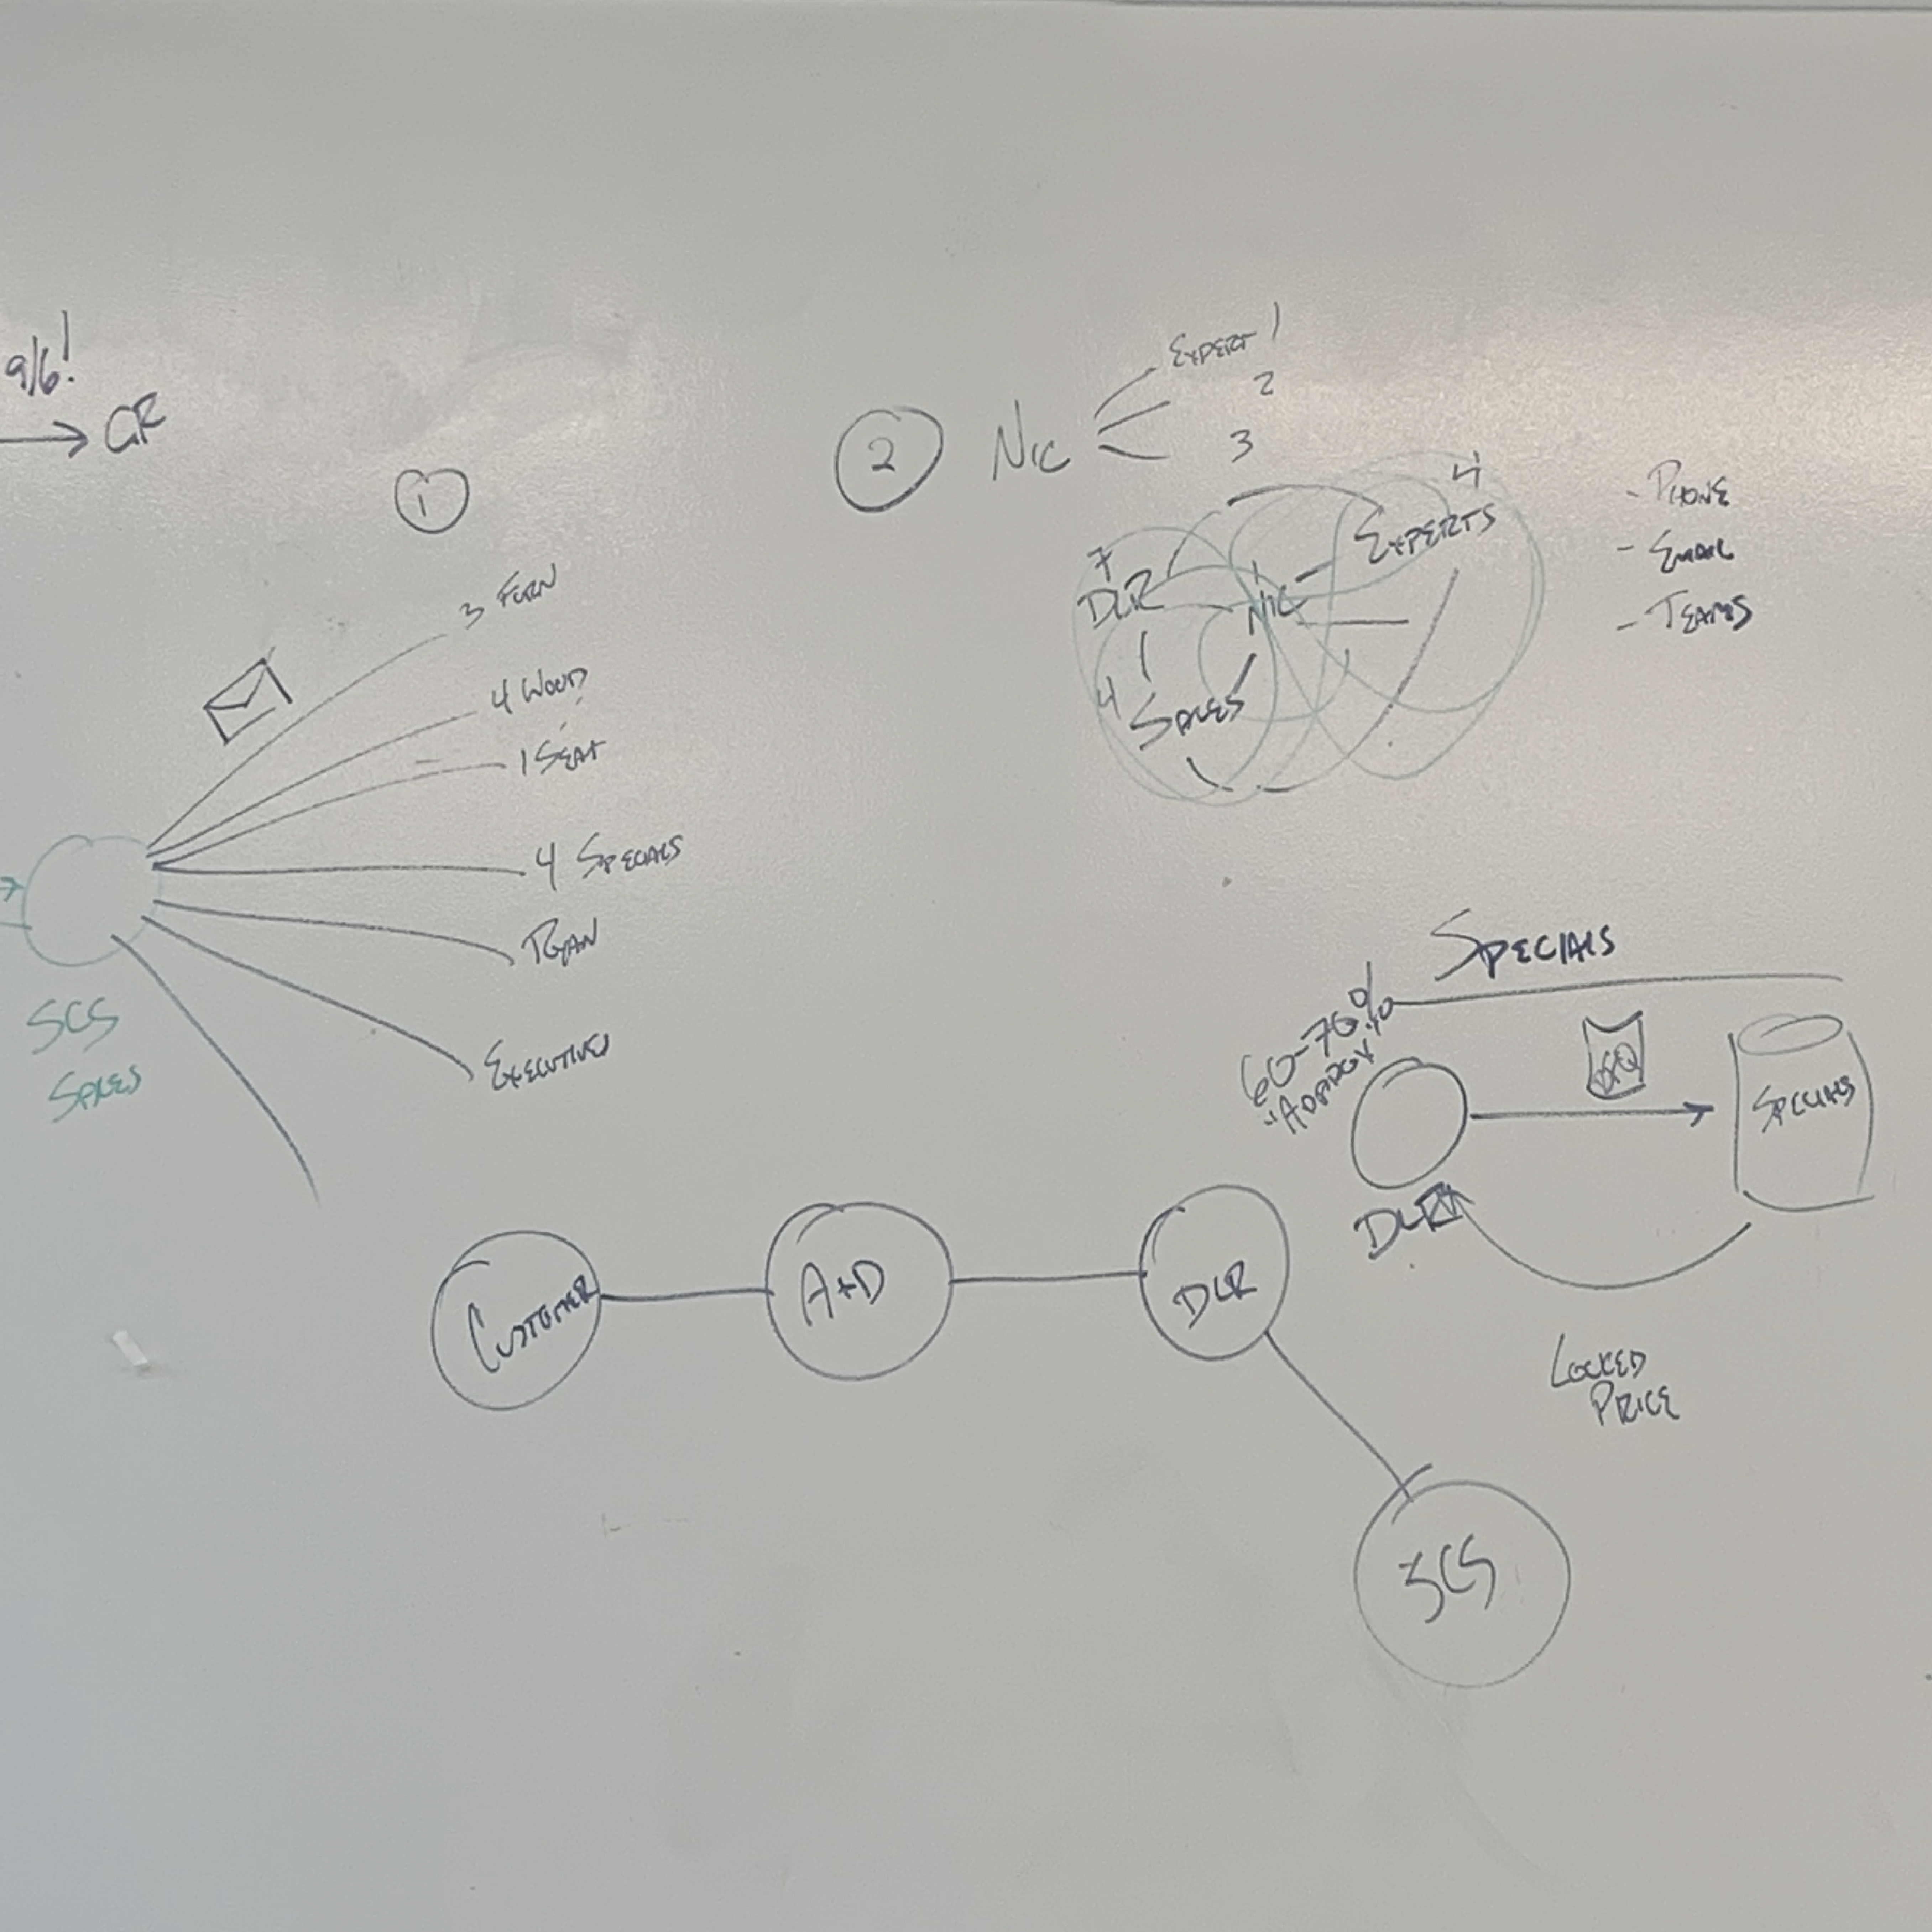 9/6!
→ CR
1
3 FURN
4 WOOD
1 SEAT
4 SPECIALS
RYAN
EXECUTIVES
SCS
SALES
2 NIC
EXPERT 1
2
3
4
EXPERTS
7
DLR
1
NIC
4
SALES
- PHONE
- EMAIL
- TEAMS
SPECIALS
60-70%
"APPROX"
DLR
RFQ
SPECIALS
LOCKED
PRICE
CUSTOMER
A+D
DLR
SCS